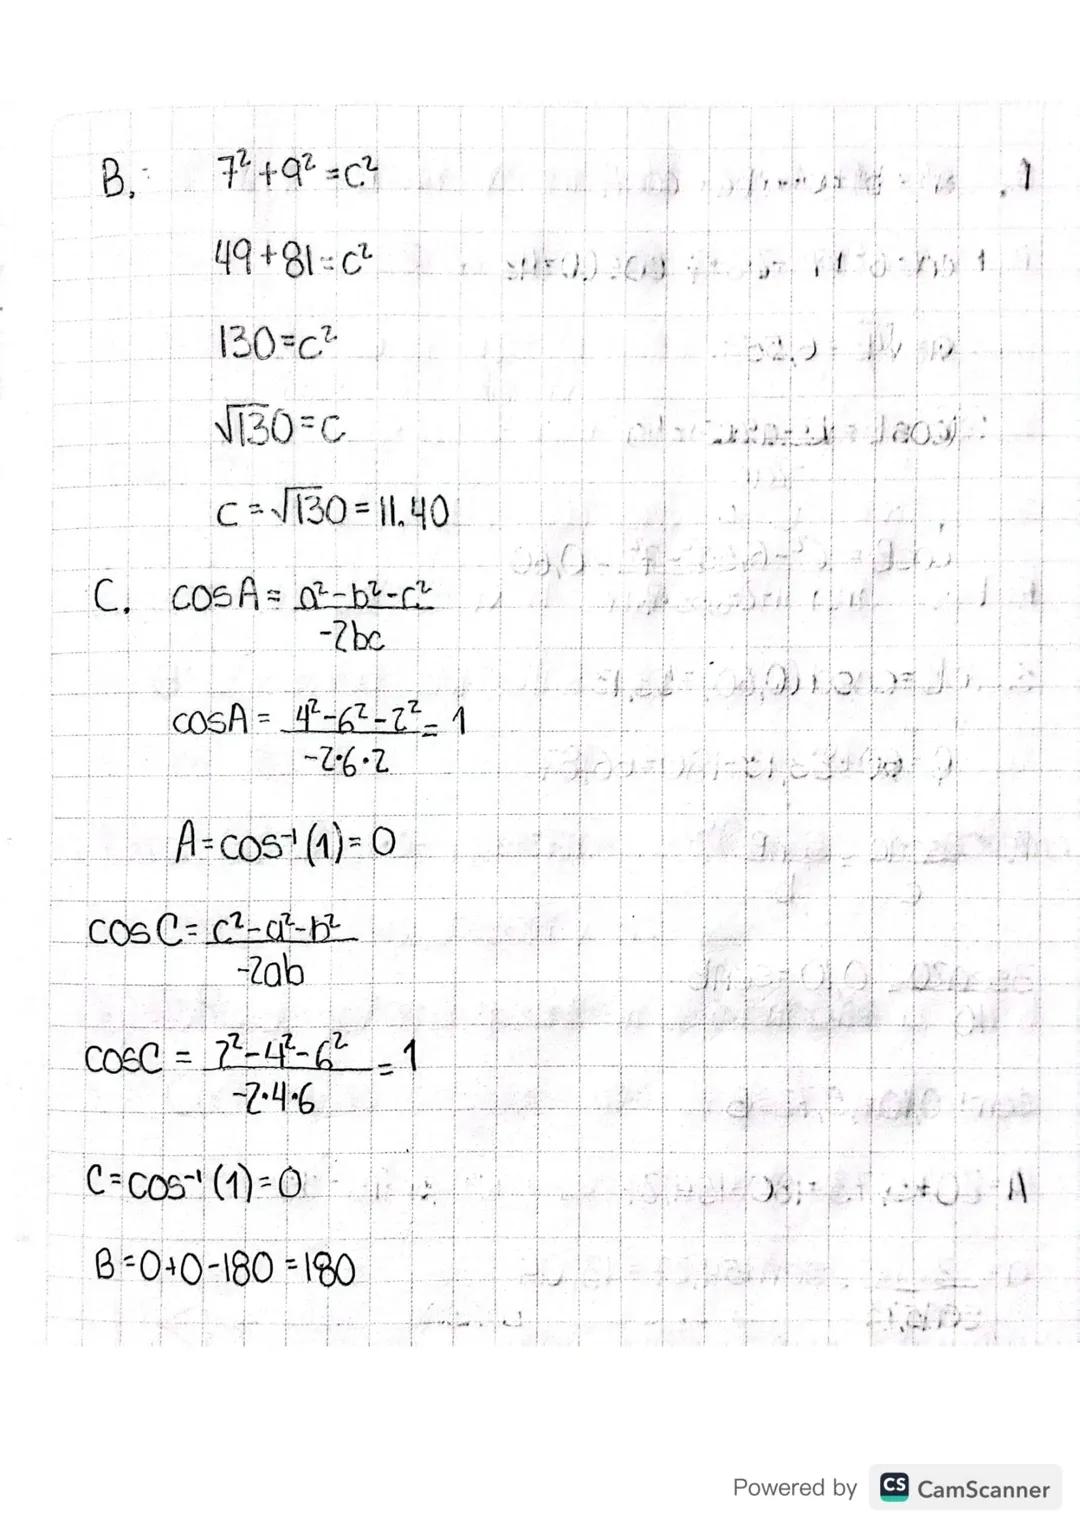 B.
7² + 9² = c²
49 + 81 = c²
130 = c²
√130 = c
c = √130 = 11.40
C. cos A = a² - b² - c² / -2bc
cos A = 4² - 6² - 2² / -2·6·2 = 1
A = cos⁻¹ (1) = 0
cos C = c² - a² - b² / -2ab
cos C = 2² - 4² - 6² / -2·4·6 = 1
C = cos⁻¹ (1) = 0
B = 0 + 0 - 180 = 180
Powered by CS CamScanner